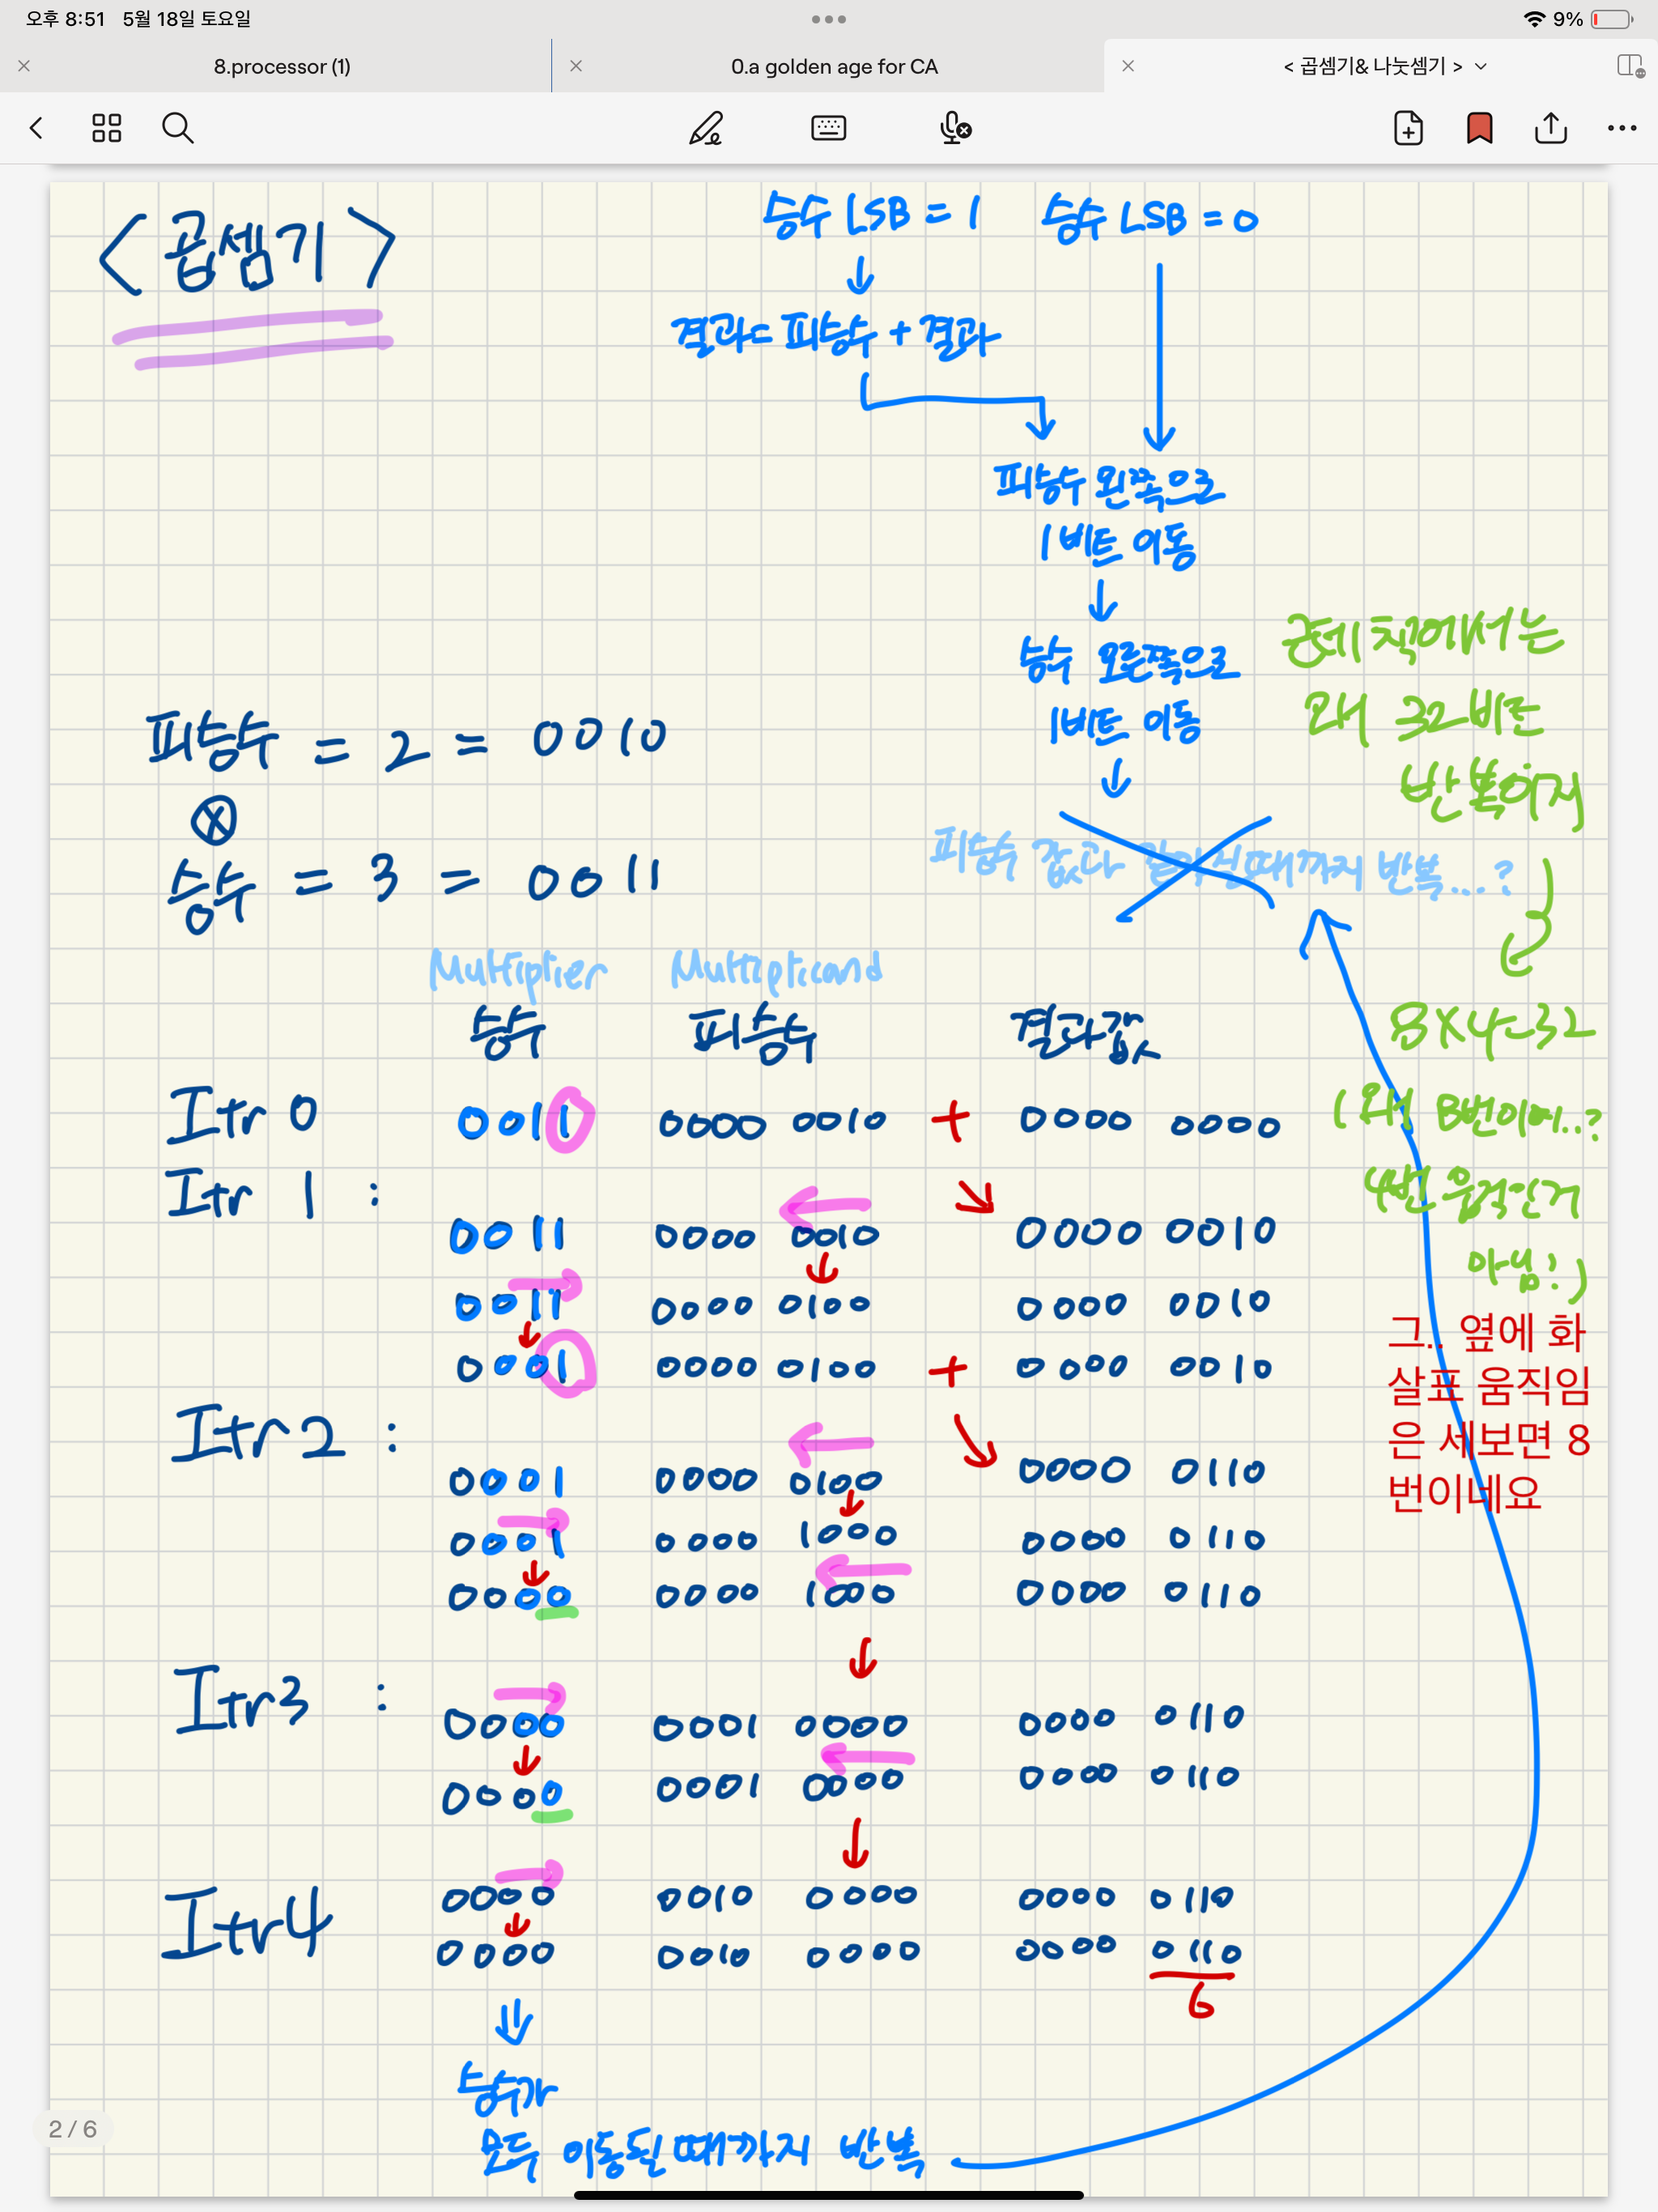 오후 8:51 5월 18일 토요일
9%
8.processor (1)
0.a golden age for CA
< 곱셈기& 나눗셈기 >
< 곱셈기 >
승수 LSB = 1 승수 LSB = 0
결과 = 피승수 + 결과
피승수 왼쪽으로
1비트 이동
승수 오른쪽으로
1비트 이동
근데 책에서는
왜 32비트
반복이지
피승수 = 2 = 0010
⊗
승수 = 3 = 0011
피승수 값과 때까지 반복...?
8×4=32
(왜 8번이야..?
4번 움직인거
아님?)
그.. 옆에 화
살표 움직임
은 세보면 8
번이네요
Multiplier Multiplicand
승수 피승수 결과값
Itr 0 0011 0000 0010 + 0000 0000
Itr 1 :
0011 0000 0010 0000 0010
0011 0000 0100 0000 0010
0001 0000 0100 + 0000 0010
Itr 2 :
0001 0000 0100 0000 0110
0001 0000 1000 0000 0110
0000 0000 1000 0000 0110
Itr3 :
0000 0001 0000 0000 0110
0000 0001 0000 0000 0110
Itr4
0000 0010 0000 0000 0110
0000 0010 0000 0000 0110
6
승수가
모두 이동될 때까지 반복
2 / 6